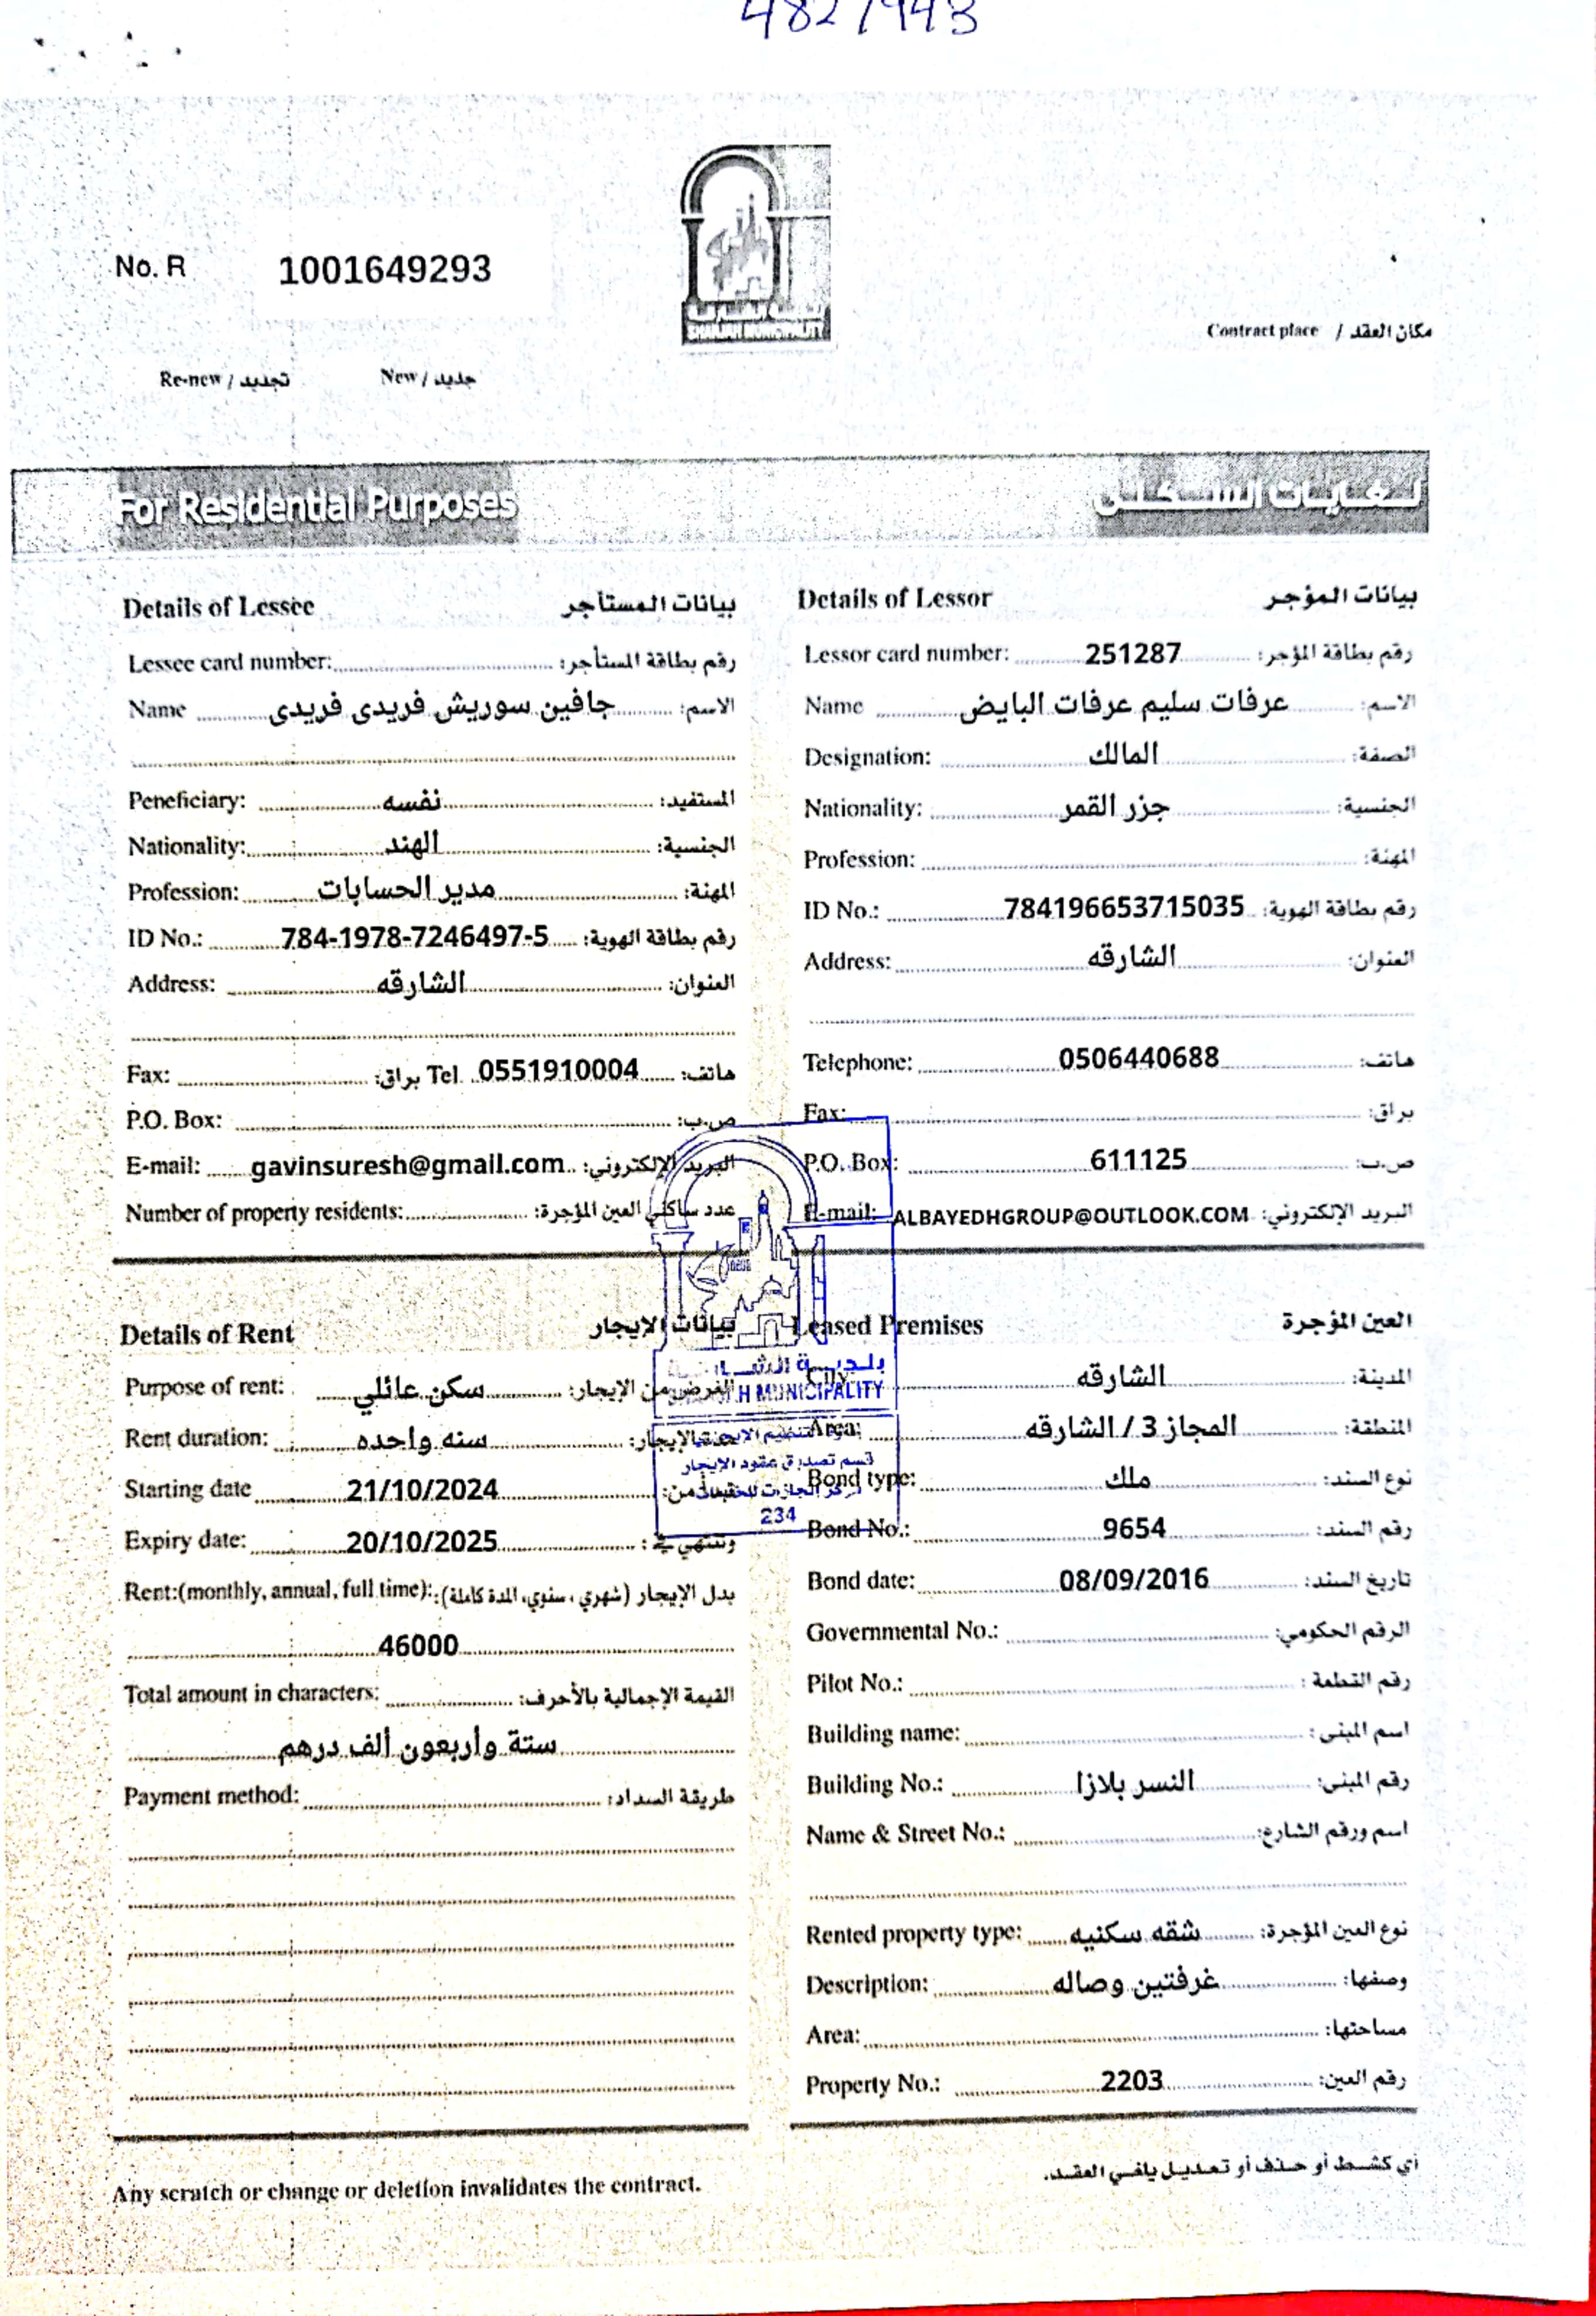 4827943
No. R 1001649293
بلدية الشارقة
SHARJAH MUNICIPALITY
Contract place / مكان العقد
Re-new / تجديد New / جديد
For Residential Purposes لـغـايـات السـكـنـى
Details of Lessee بيانات المستأجر
Lessee card number: رقم بطاقة المستأجر:
Name جافين سوريش فريدى فريدى الاسم:
Peneficiary: نفسه المستفيد:
Nationality: الهند الجنسية:
Profession: مدير الحسابات المهنة:
ID No.: 784-1978-7246497-5 رقم بطاقة الهوية:
Address: الشارقه العنوان:
Fax: براق: Tel 0551910004 هاتف:
P.O. Box: ص.ب:
E-mail: gavinsuresh@gmail.com البريد الإلكتروني:
Number of property residents: عدد ساكني العين المؤجرة:
Details of Lessor بيانات المؤجر
Lessor card number: 251287 رقم بطاقة المؤجر:
Name عرفات سليم عرفات البايض الاسم:
Designation: المالك الصفة:
Nationality: جزر القمر الجنسية:
Profession: المهنة:
ID No.: 784196653715035 رقم بطاقة الهوية:
Address: الشارقه العنوان:
Telephone: 0506440688 هاتف:
Fax: براق:
P.O. Box: 611125 ص.ب:
E-mail: ALBAYEDHGROUP@OUTLOOK.COM البريد الإلكتروني:
Details of Rent بيانات الإيجار
Purpose of rent: سكن عائلي الغرض من الإيجار:
Rent duration: سنه واحده مدة الإيجار:
Starting date 21/10/2024 من:
Expiry date: 20/10/2025 وتنتهي في:
Rent:(monthly, annual, full time): بدل الإيجار (شهري، سنوي، المدة كاملة):
46000
Total amount in characters: القيمة الإجمالية بالأحرف:
ستة وأربعون ألف درهم
Payment method: طريقة السداد:
بلدية الشارقة
MUNICIPALITY
قسم تصديق عقود الإيجار
234
Leased Premises العين المؤجرة
City: الشارقه المدينة:
Area: المجاز 3 / الشارقه المنطقة:
Bond type: ملك نوع السند:
Bond No.: 9654 رقم السند:
Bond date: 08/09/2016 تاريخ السند:
Governmental No.: الرقم الحكومي:
Pilot No.: رقم القطعة :
Building name: اسم المبنى :
Building No.: النسر بلازا رقم المبنى:
Name & Street No.: اسم ورقم الشارع:
Rented property type: شقه سكنيه نوع العين المؤجرة:
Description: غرفتين وصاله وصفها:
Area: مساحتها:
Property No.: 2203 رقم العين:
Any scratch or change or deletion invalidates the contract. أي كشـط أو حـذف أو تـعـديـل يلغـي العقـد.